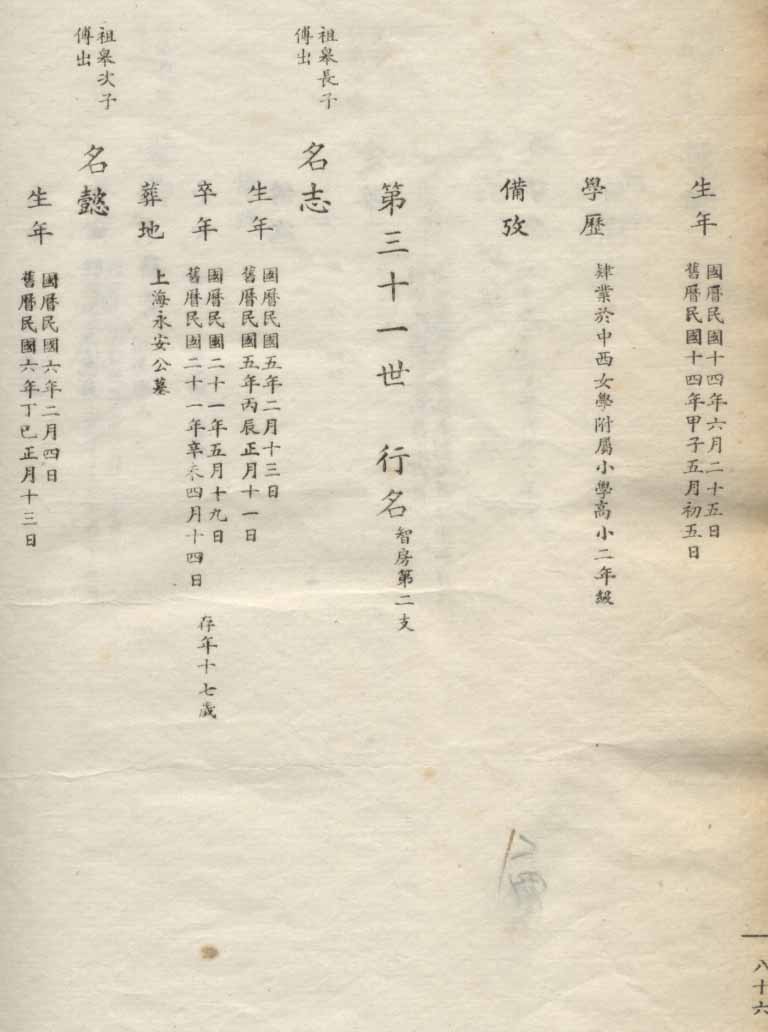 生年
國曆民國十四年六月二十五日
舊曆民國十四年甲子五月初五日
學歷
肄業於中西女學附屬小學高小二年級
備攷
第三十一世 行名
智房第二支
祖皋長子
傅出
名志
生年
國曆民國五年二月十三日
舊曆民國五年丙辰正月十一日
卒年
國曆民國二十一年五月十九日
舊曆民國二十一年辛未四月十四日
存年十七歲
葬地
上海永安公墓
祖皋次子
傅出
名懿
生年
國曆民國六年二月四日
舊曆民國六年丁巳正月十三日
八十六